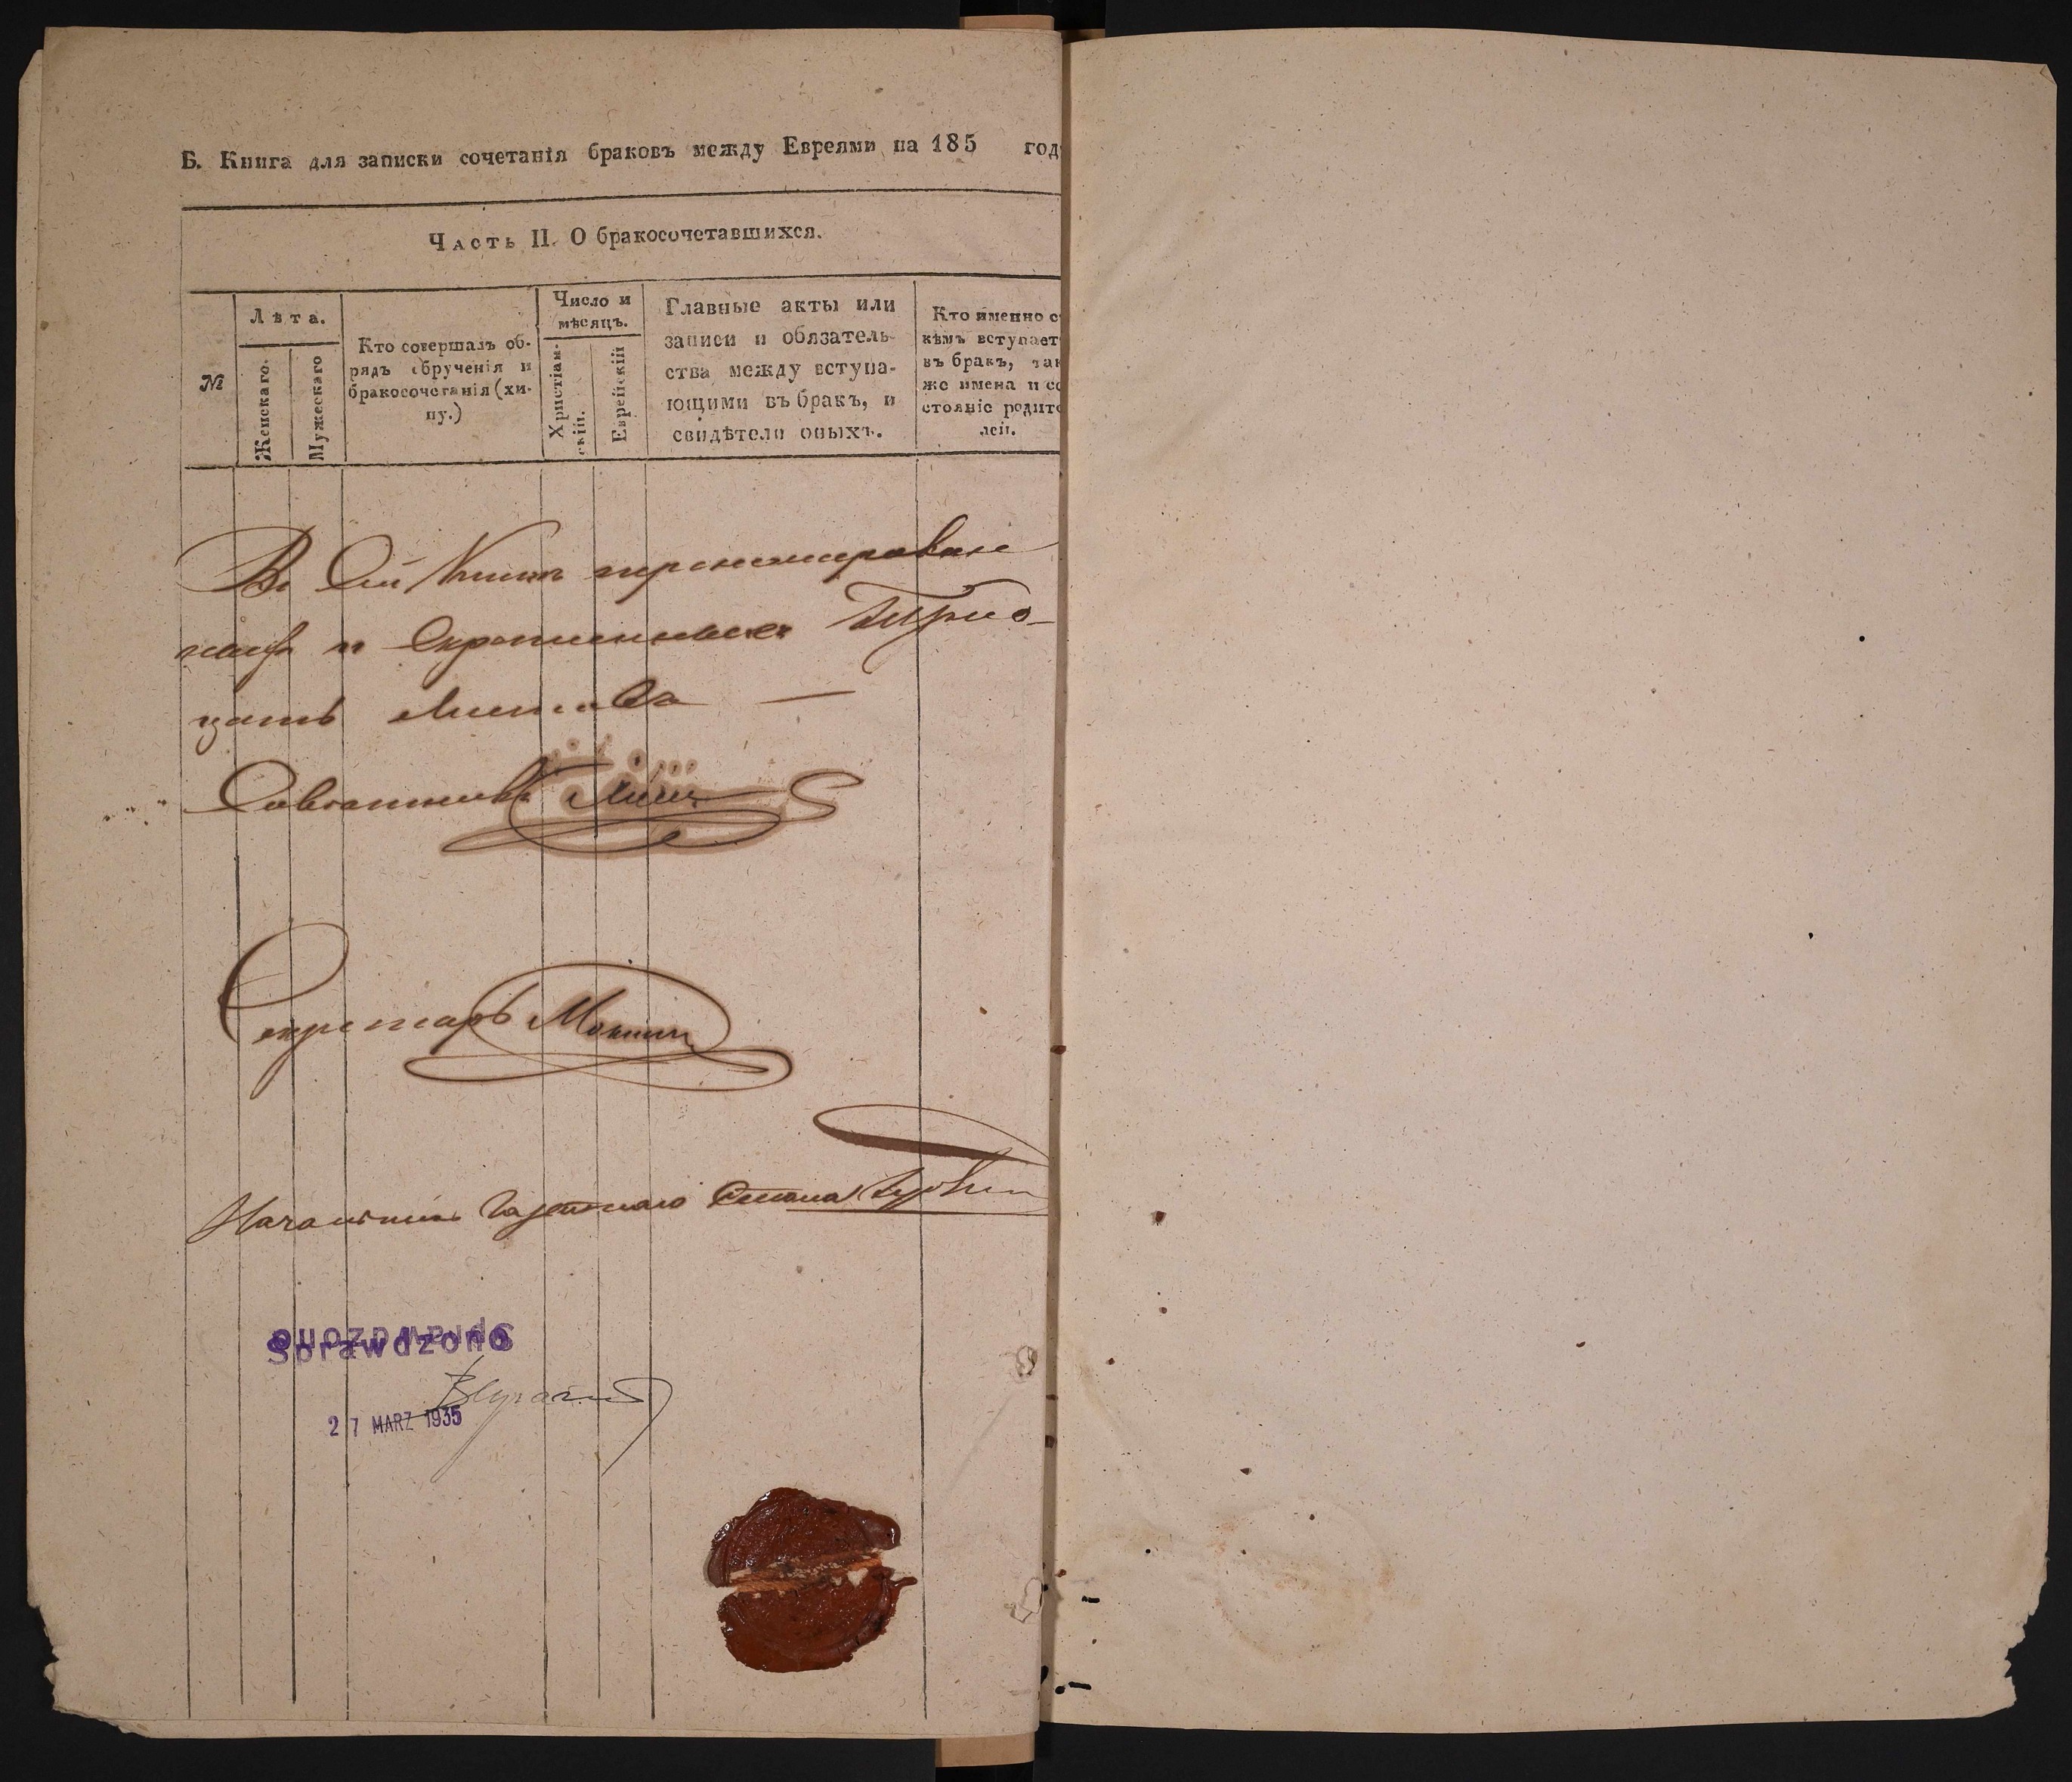 Б. Книга для записки сочетанія браковъ между Евреями на 185 год
Часть II. О бракосочетавшихся.
№
Лѣта.
Женскаго.
Мужескаго
Кто совершалъ об-
рядъ обрученія и
бракосочетанія (хи-
пу.)
Число и
мѣсяцъ.
Христіан-
скій.
Еврейскій
Главные акты или
записи и обязатель-
ства между вступа-
ющими въ бракъ, и
свидѣтели оныхъ.
Кто именно с
кѣмъ вступает
въ бракъ, так
же имена и со
стояніе родите
лей.
Въ Сей Книгѣ
и
цать листовъ —
Совѣтникъ
Секретарь
Начальникъ Газетнаго Стола
Sprawdzono
Sprawdzono
27 MARZ 1935